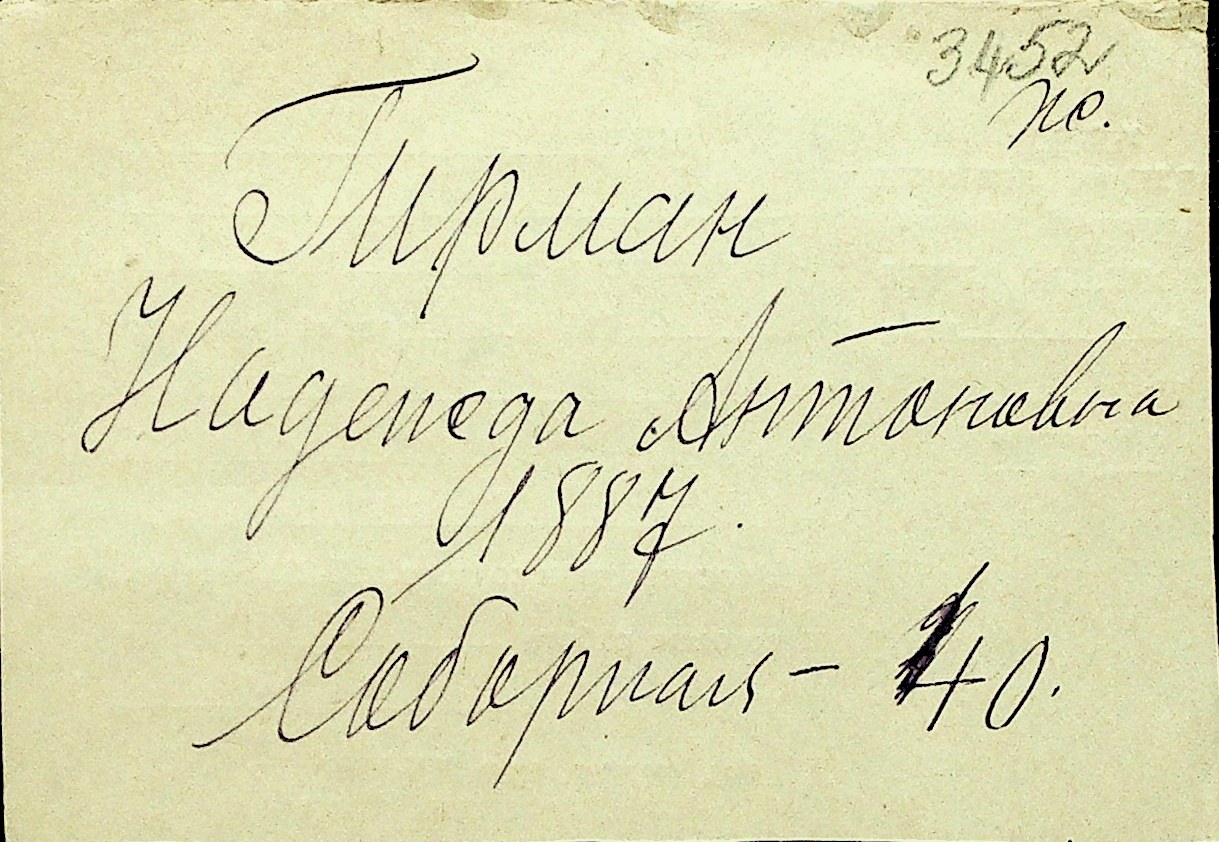 3452
пс.
Гирман
Надежда Антоновна
1887.
Соборная - 40.